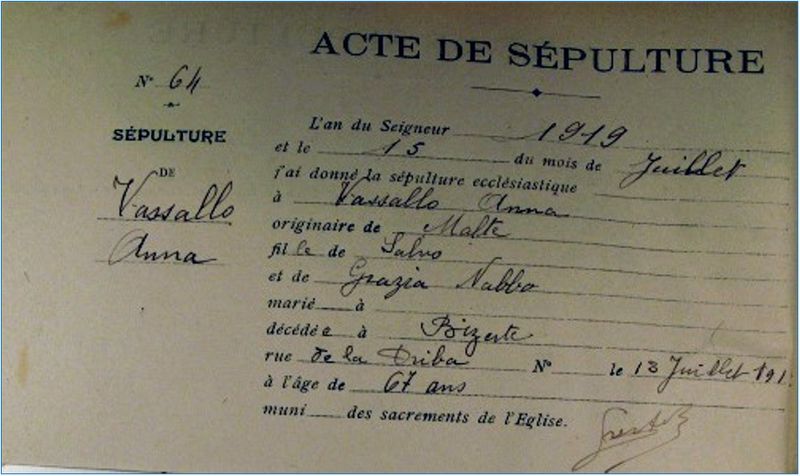 ACTE DE SÉPULTURE
N° 64
SÉPULTURE
DE
Vassallo
Anna
L'an du Seigneur 1919
et le 15 du mois de Juillet
j'ai donné la sépulture ecclésiastique
à Vassallo Anna
originaire de Malte
fille de Salvo
et de Grazia Nabbo
marié à
décédée à Bizerte
rue de la Driba N° le 13 Juillet 191
à l'âge de 67 ans
muni des sacrements de l'Eglise.